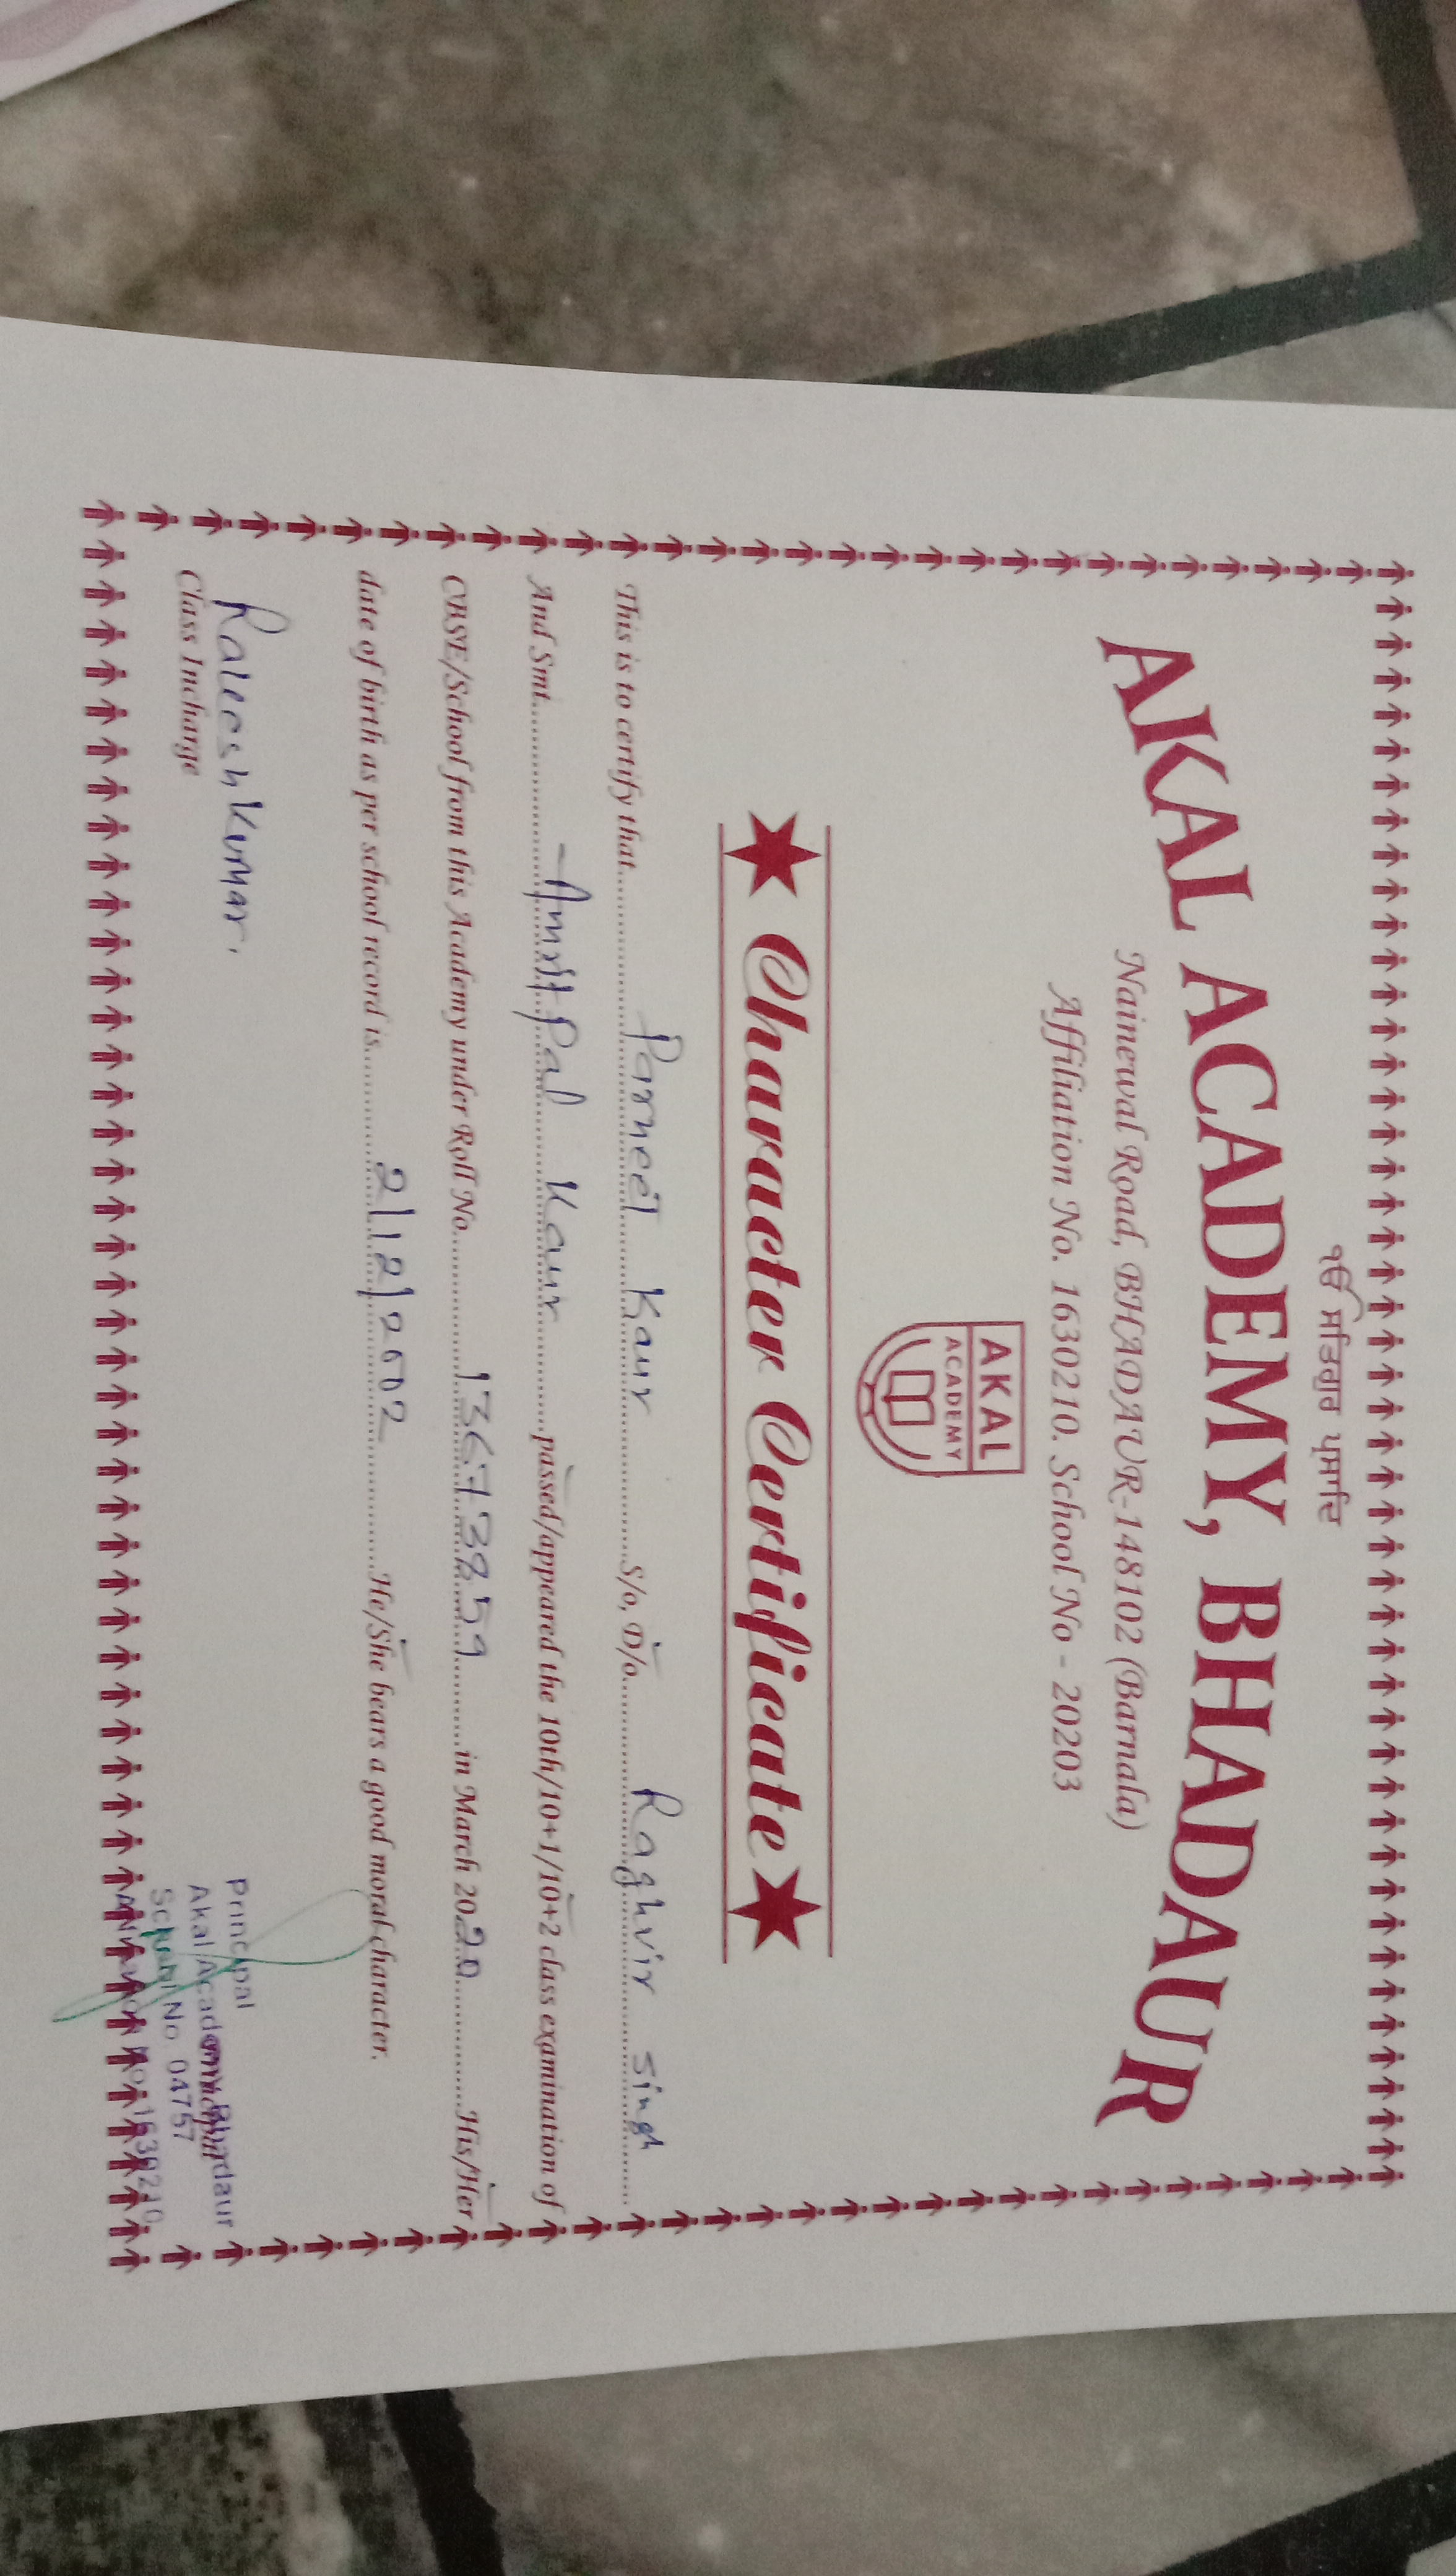 ੴ ਸਤਿਗੁਰ ਪ੍ਰਸਾਦਿ
AKAL ACADEMY, BHADAUR
Nainewal Road, BHADAUR-148102 (Barnala)
Affiliation No. 1630210. School No - 20203
AKAL
ACADEMY
Character Certificate
This is to certify that Parneet Kaur S/o, D/o Raghvir Singh
And Smt. Amrit Pal Kaur passed/appeared the 10th/10+1/10+2 class examination of
CBSE/School from this Academy under Roll No. 13673859 in March 2020 His/Her
date of birth as per school record is 2/12/2002 He/She bears a good moral character.
Kumar.
Class Incharge
Principal
Akal Academy Bhadaur
School No. 04757
No. 1630210